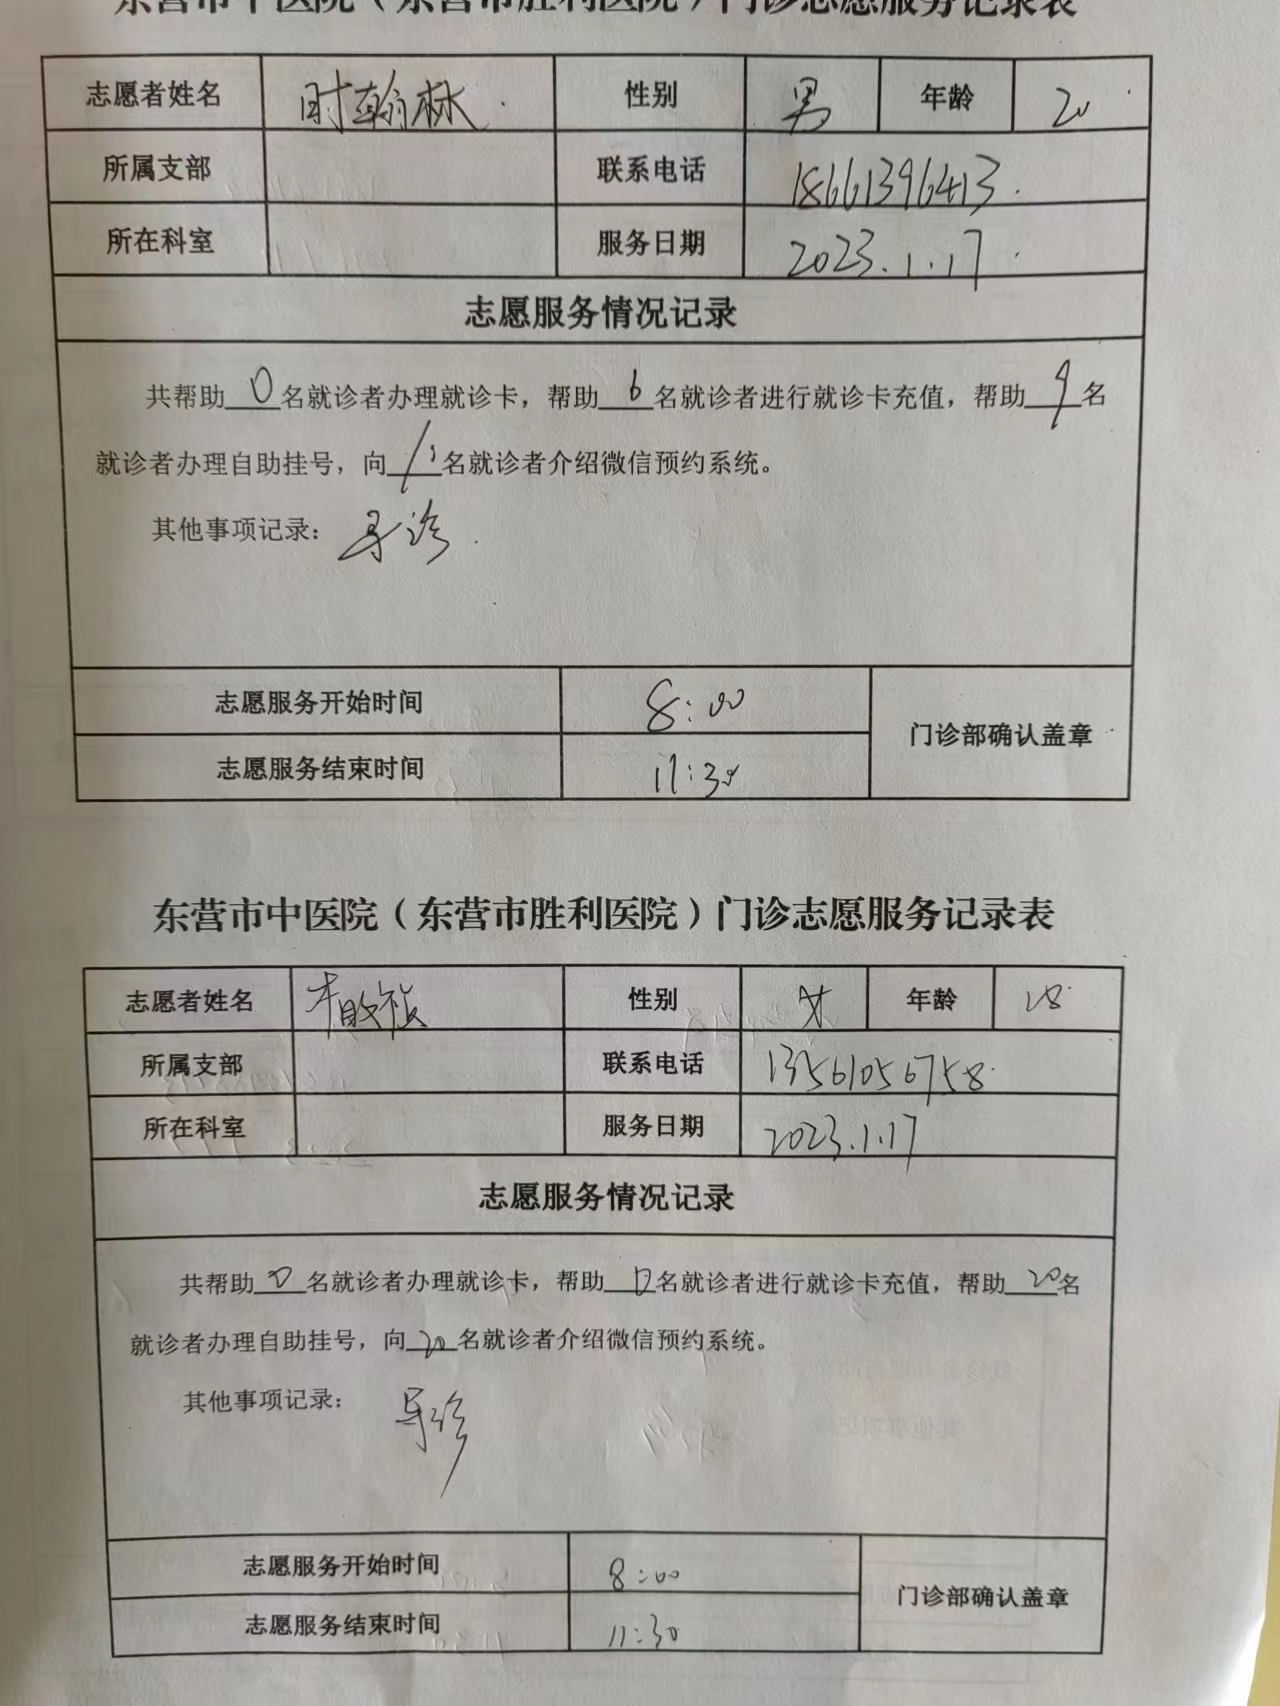 东营市中医院（东营市胜利医院）门诊志愿服务记录表
志愿者姓名 时翰林 性别 男 年龄 20
所属支部 联系电话 18661396413
所在科室 服务日期 2023.1.17
志愿服务情况记录
共帮助0名就诊者办理就诊卡，帮助6名就诊者进行就诊卡充值，帮助9名
就诊者办理自助挂号，向名就诊者介绍微信预约系统。
其他事项记录：导诊
志愿服务开始时间 8:00
门诊部确认盖章
志愿服务结束时间 11:30
东营市中医院（东营市胜利医院）门诊志愿服务记录表
志愿者姓名 性别 女 年龄 28
所属支部 联系电话 13561056758
所在科室 服务日期 2023.1.17
志愿服务情况记录
共帮助0名就诊者办理就诊卡，帮助0名就诊者进行就诊卡充值，帮助20名
就诊者办理自助挂号，向20名就诊者介绍微信预约系统。
其他事项记录：导诊
志愿服务开始时间 8:00
门诊部确认盖章
志愿服务结束时间 11:30